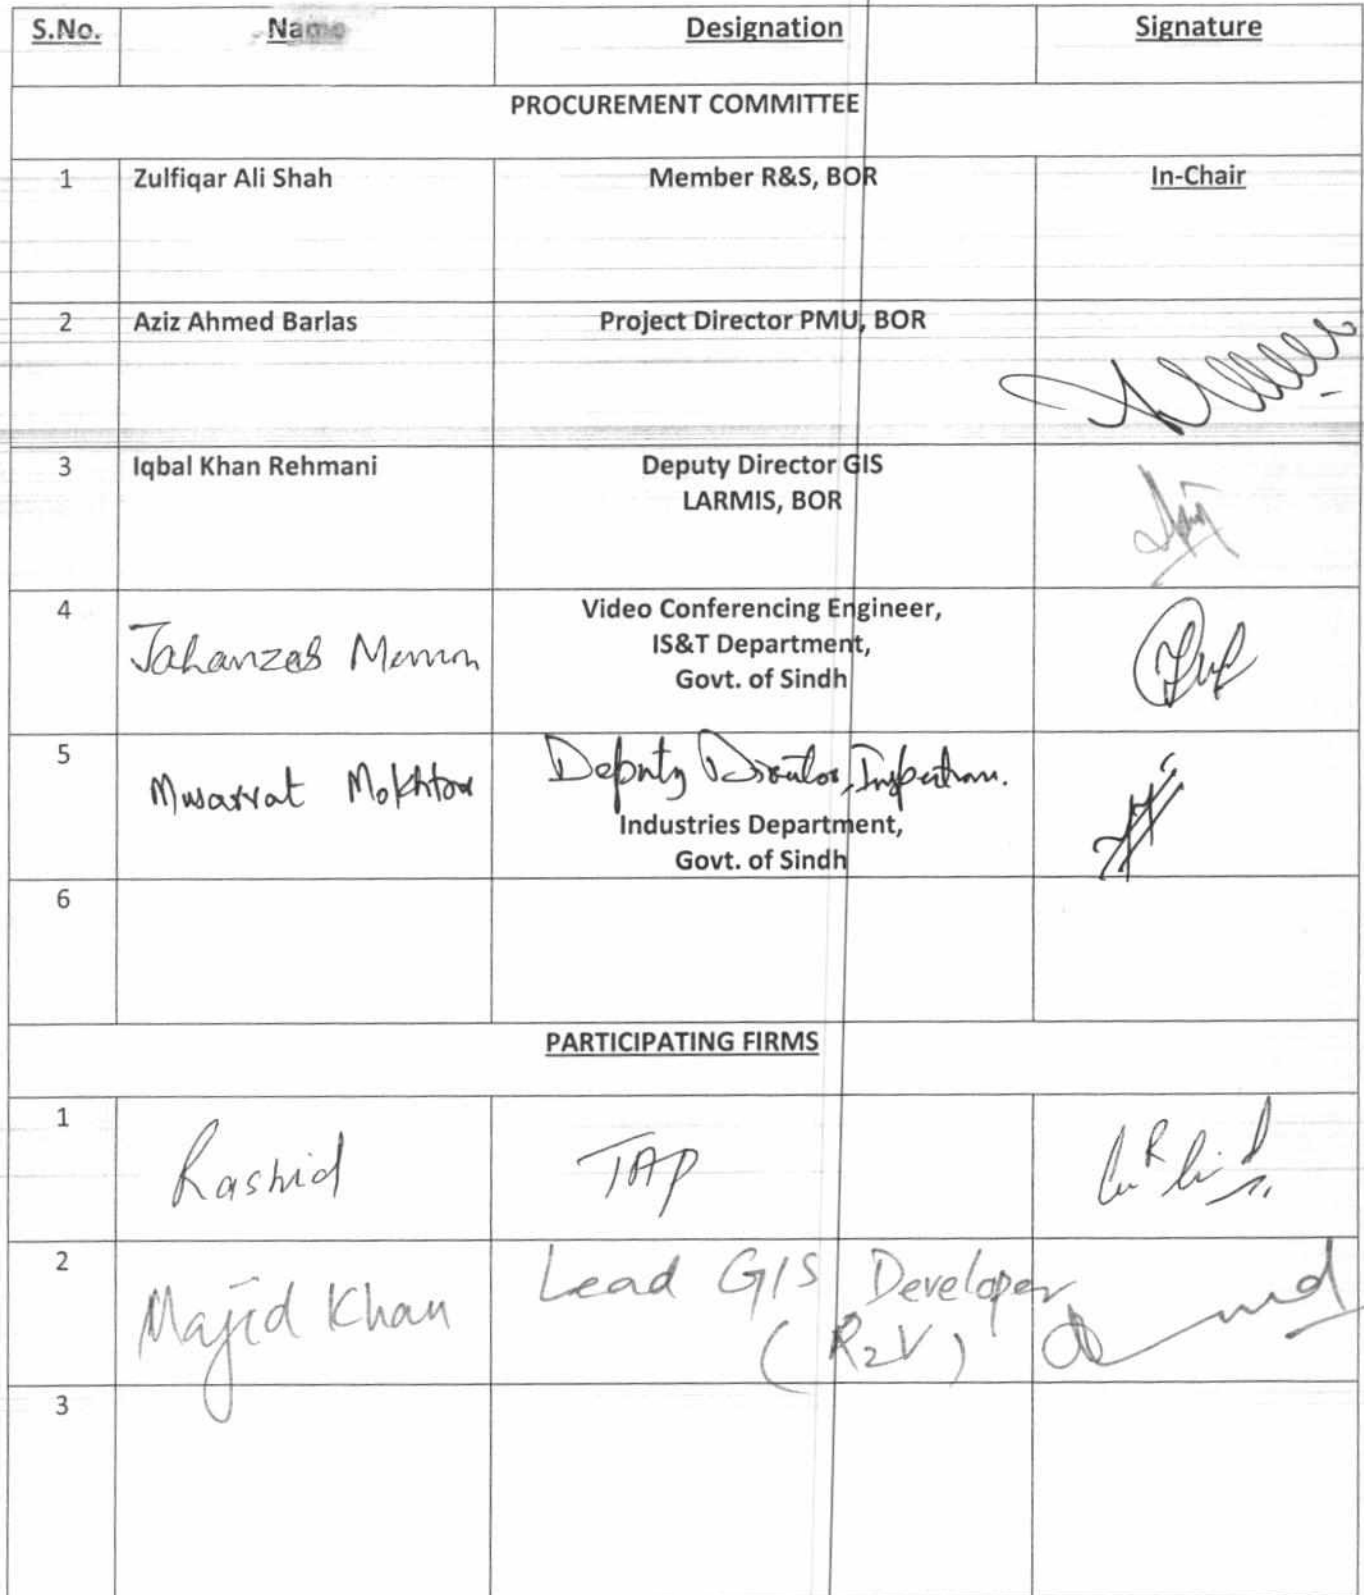 S.No. Name Designation Signature
PROCUREMENT COMMITTEE
1 Zulfiqar Ali Shah Member R&S, BOR In-Chair
2 Aziz Ahmed Barlas Project Director PMU, BOR
3 Iqbal Khan Rehmani Deputy Director GIS
LARMIS, BOR
4 Jahanzeb Memon Video Conferencing Engineer,
IS&T Department,
Govt. of Sindh
5 Musarrat Mokhtar Deputy Director, Inspection.
Industries Department,
Govt. of Sindh
6
PARTICIPATING FIRMS
1 Rashid TAP
2 Majid Khan Lead GIS Developer
(R2V)
3